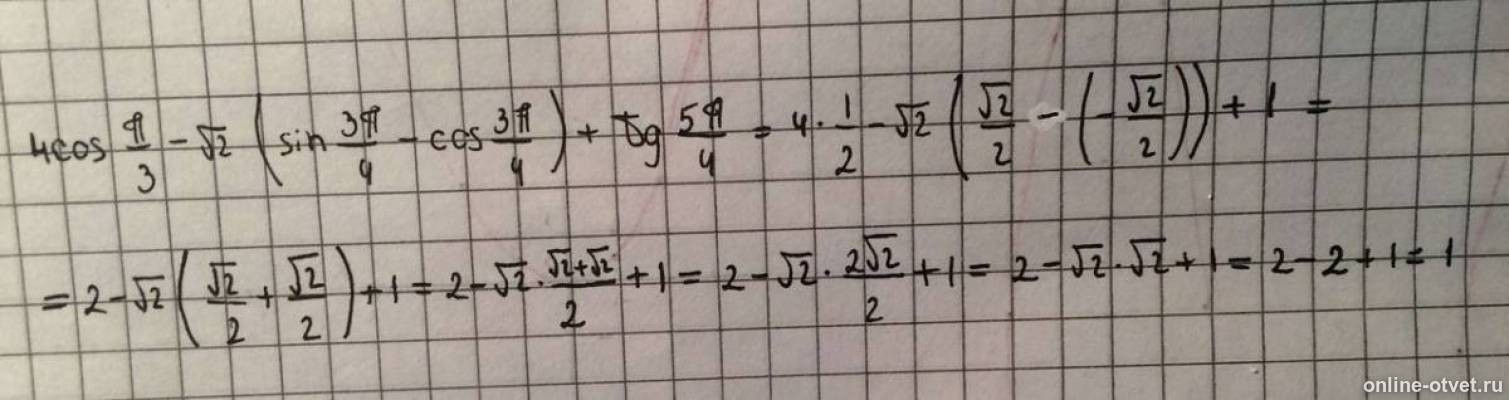 4cos π/3 − √2 (sin 3π/4 − cos 3π/4) + tg 5π/4 = 4·1/2 − √2 (√2/2 − (−√2/2)) + 1 =
= 2 − √2 (√2/2 + √2/2) + 1 = 2 − √2 · (√2+√2)/2 + 1 = 2 − √2 · 2√2/2 + 1 = 2 − √2·√2 + 1 = 2 − 2 + 1 = 1
online-otvet.ru